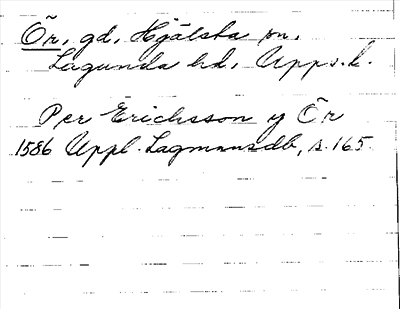 Ör, gd, Hjälsta sn,
Lagunda hd, Upps. l.
Per Erichsson y Ör
1586 Uppl. Lagmansdb, s. 165.